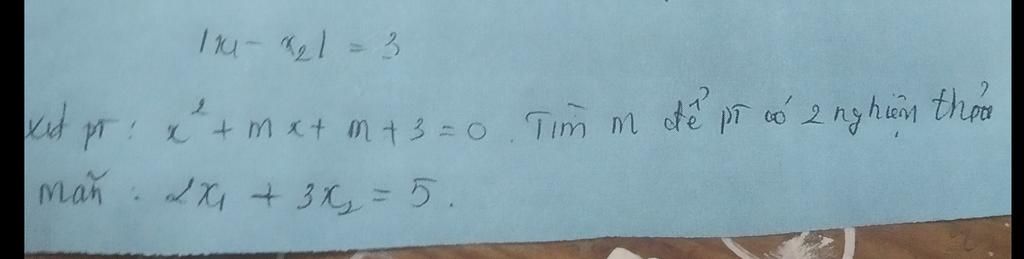 |x1 - x2| = 3
xét pt: x² + mx + m + 3 = 0. Tìm m để pt có 2 nghiệm thỏa
mãn: 2x₁ + 3x₂ = 5.